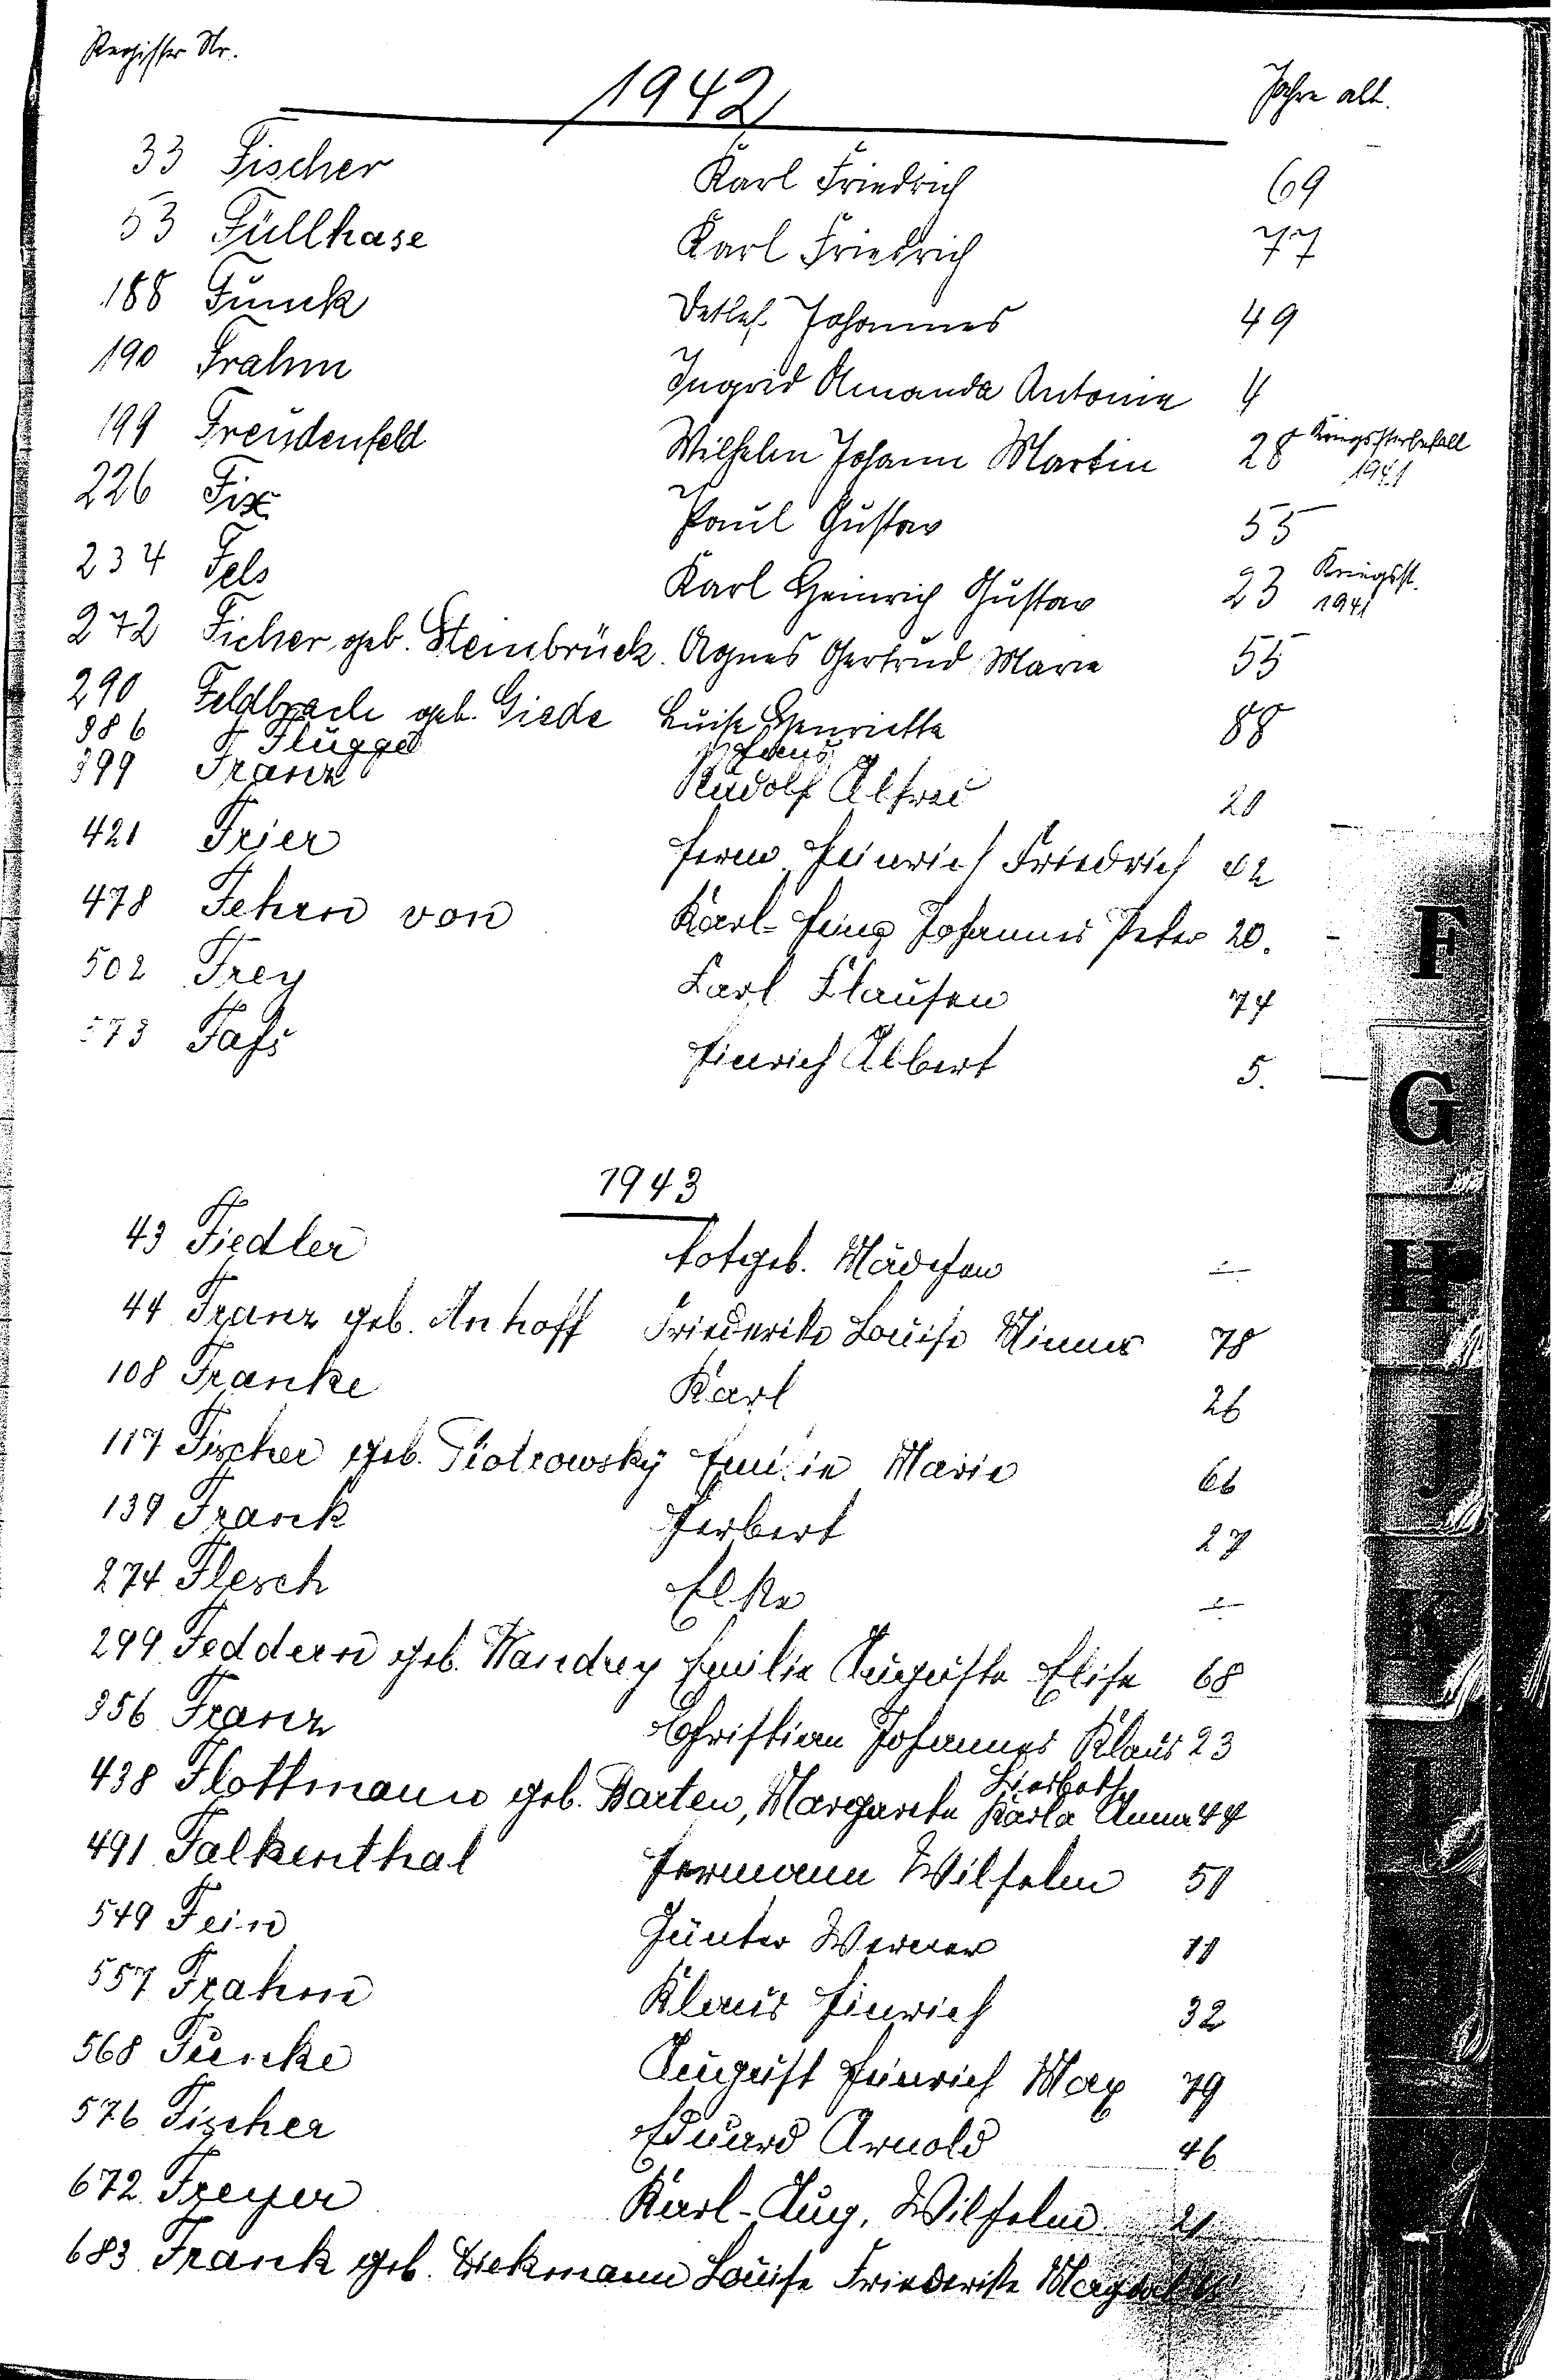 Register Nr.
1942
Jahre alt.
33 Fischer Karl Friedrich 69
53 Füllhase Karl Friedrich 77
188 Funck Detlef Johannes 49
190 Frahm Ingrid Amanda Antonie 4
199 Freudenfeld Wilhelm Johann Martin 28 Kriegssterbefall 1941
226 Fix Paul Gustav 55
234 Fels Karl Heinrich Gustav 23 Kriegsst. 1941
272 Ficher geb. Steinbrück Agnes Gertrud Marie 55
290 Feldbrach geb. Giede Luise Henriette 88
386 Flügge Hans
399 Franz Rudolf Alfred 20
421 Frier Herm. Heinrich Friedrich 42
478 Fehrn von Karl-Heinz Johannes Peter 20.
502 Frey Carl Clausen 74
573 Faß Hinrich Albert 5.
1943
43 Fiedler totgeb. Mädchen ÷
44 Franz geb. Anhoff Friederike Louise Minna 78
108 Franke Karl 26
117 Fischer geb. Piotrowsky Emilie Marie 66
139 Frank Herbert 27
274 Flesch Elke ÷
299 Feddern geb. Wandrey Emilie Auguste Elise 68
356 Franz Christian Johannes Klaus 23
Liesbeth
438 Flottmann geb. Barten, Margarete Karla Anna 44
491 Falkenthal Hermann Wilhelm 51
549 Fein Günter Werner 11
557 Frahm Klaus Hinrich 32
568 Funke August Hinrich Max 79
576 Fischer Eduard Arnold 46
672 Freyer Karl-Aug. Wilhelm 21
683 Frank geb. Diekmann Louise Friederike Magdal
F
G
H
J
K